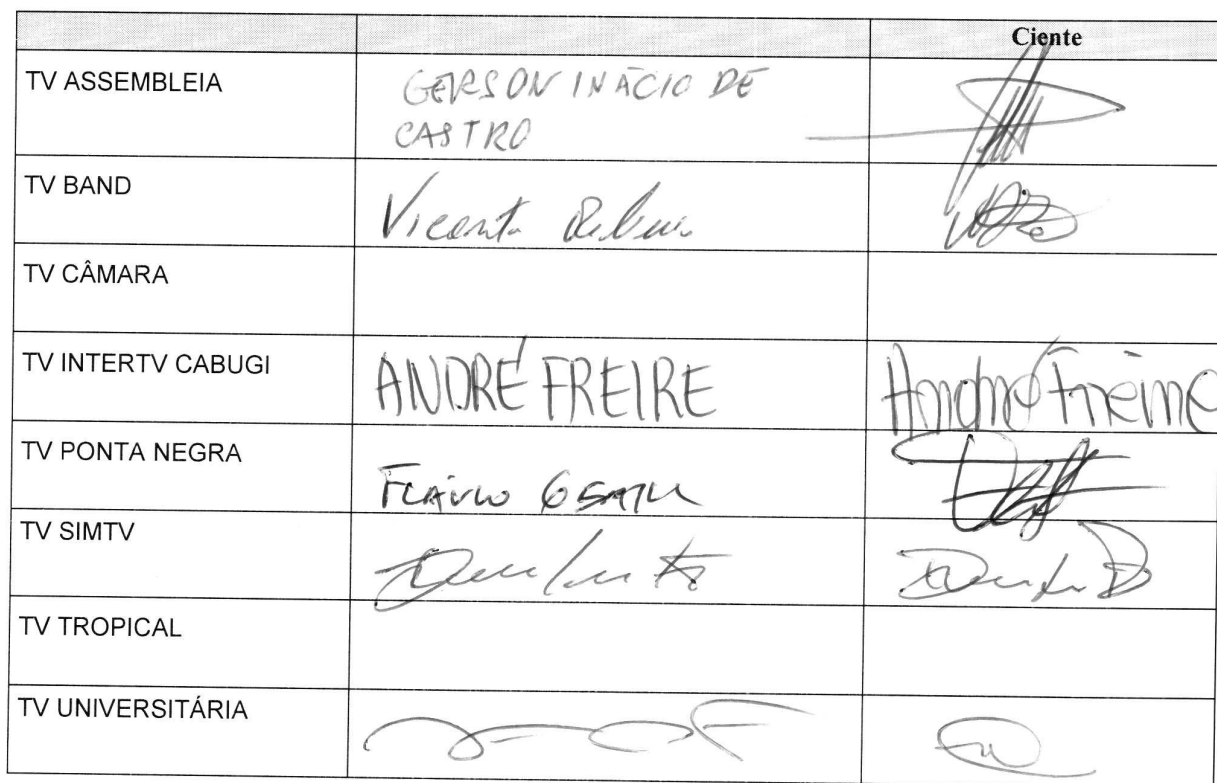 Ciente
TV ASSEMBLEIA
GERSON INÁCIO DE
CASTRO
TV BAND
Vicente
TV CÂMARA
TV INTERTV CABUGI
ANDRÉ FREIRE
André Freire
TV PONTA NEGRA
FLÁVIO
TV SIMTV
TV TROPICAL
TV UNIVERSITÁRIA